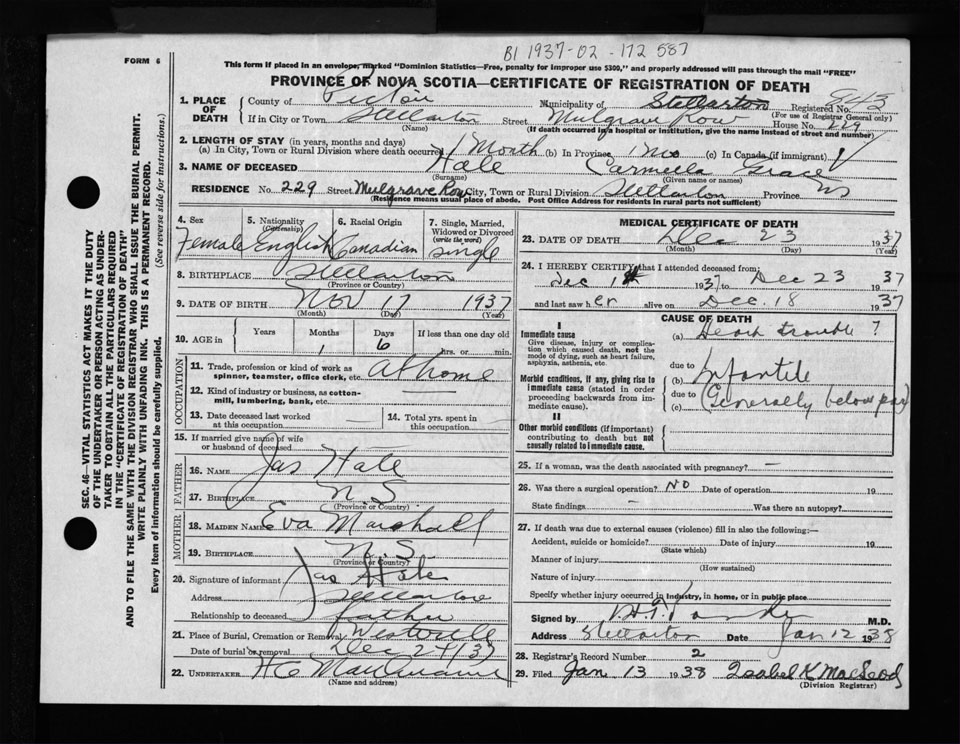 B1 1937-02-172587
FORM 6
This form if placed in an envelope, marked "Dominion Statistics—Free, penalty for improper use $300," and properly addressed will pass through the mail "FREE"
PROVINCE OF NOVA SCOTIA—CERTIFICATE OF REGISTRATION OF DEATH
1. PLACE OF DEATH
County of Pictou Municipality of Stellarton Registered No. 843
(For use of Registrar General only)
If in City or Town Stellarton Street Mulgrave Row House No. 229
(Name) (If death occurred in a hospital or institution, give the name instead of street and number)
2. LENGTH OF STAY (in years, months and days)
(a) In City, Town or Rural Division where death occurred 1 Month (b) In Province (c) In Canada (if immigrant)
3. NAME OF DECEASED Hale Carmella Grace
(Surname) (Given name or names)
RESIDENCE No. 229 Street Mulgrave Row City, Town or Rural Division Stellarton Province NS
(Residence means usual place of abode. Post Office Address for residents in rural parts not sufficient)
4. Sex 5. Nationality (Citizenship) 6. Racial Origin 7. Single, Married, Widowed or Divorced (write the word)
Female English Canadian Single
8. BIRTHPLACE Stellarton
(Province or Country)
9. DATE OF BIRTH Nov 17 1937
(Month) (Day) (Year)
10. AGE in Years Months Days If less than one day old
1 6 hrs. or min.
OCCUPATION
11. Trade, profession or kind of work as spinner, teamster, office clerk, etc. At home
12. Kind of industry or business, as cotton-mill, lumbering, bank, etc.
13. Date deceased last worked at this occupation
14. Total yrs. spent in this occupation
15. If married give name of wife or husband of deceased
FATHER
16. NAME Jas Hale
17. BIRTHPLACE N S
(Province or Country)
MOTHER
18. MAIDEN NAME Eva Marshall
19. BIRTHPLACE N. S.
(Province or Country)
20. Signature of informant Jas Hale
Address Stellarton
Relationship to deceased father
21. Place of Burial, Cremation or Removal Westville
Date of burial or removal Dec 24/37
22. UNDERTAKER
(Name and address)
MEDICAL CERTIFICATE OF DEATH
23. DATE OF DEATH Dec 23 1937
(Month) (Day) (Year)
24. I HEREBY CERTIFY that I attended deceased from:
Dec 1937 to Dec 23 1937
and last saw her alive on Dec. 18 1937
CAUSE OF DEATH
I
Immediate cause
Give disease, injury or complication which caused death, not the mode of dying, such as heart failure, asphyxia, asthenia, etc.
(a) trouble ?
due to
Morbid conditions, if any, giving rise to immediate cause (stated in order proceeding backwards from immediate cause).
(b) Infantile
due to
(c) Generally below par
II
Other morbid conditions (if important) contributing to death but not causally related to immediate cause.
25. If a woman, was the death associated with pregnancy? —
26. Was there a surgical operation? No Date of operation 19
State findings — Was there an autopsy?
27. If death was due to external causes (violence) fill in also the following:—
Accident, suicide or homicide? Date of injury 19
(State which)
Manner of injury
(How sustained)
Nature of injury
Specify whether injury occurred in industry, in home, or in public place
Signed by M.D.
Address Stellarton Date Jan 12 1938
28. Registrar's Record Number 2
29. Filed Jan 13 1938 Isabel K MacLeod
(Division Registrar)
SEC. 46—VITAL STATISTICS ACT MAKES IT THE DUTY
OF THE UNDERTAKER OR PERSON ACTING AS UNDER-
TAKER TO OBTAIN ALL THE PARTICULARS REQUIRED
IN THE "CERTIFICATE OF REGISTRATION OF DEATH"
AND TO FILE THE SAME WITH THE DIVISION REGISTRAR WHO SHALL ISSUE THE BURIAL PERMIT.
WRITE PLAINLY WITH UNFADING INK. THIS IS A PERMANENT RECORD.
Every item of information should be carefully supplied. (See reverse side for instructions.)